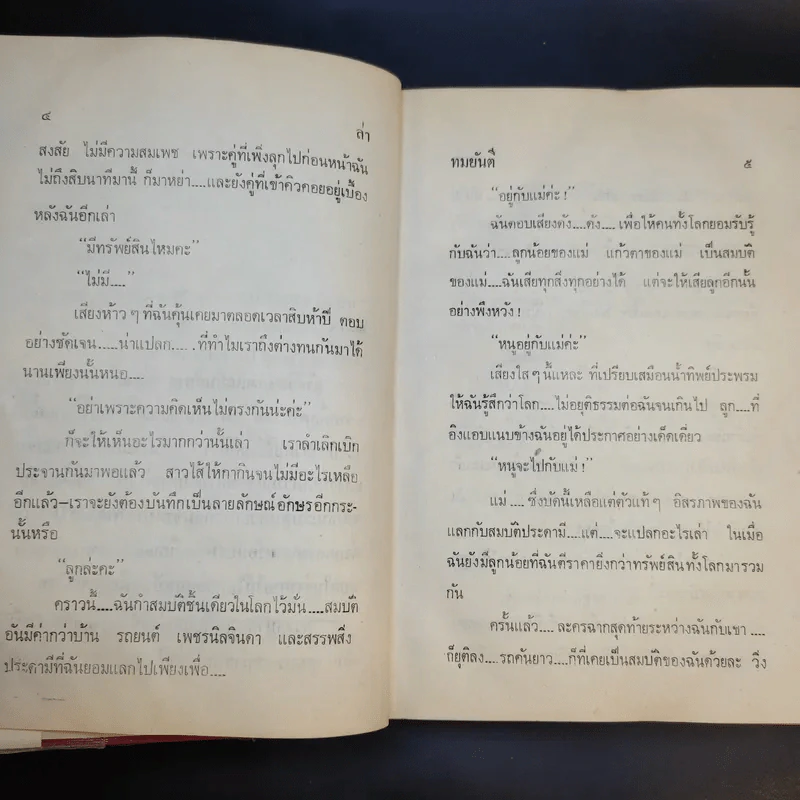 ๔
ล่า
สงสัย ไม่มีความสมเพช เพราะคู่ที่เพิ่งลุกไปก่อนหน้าฉัน
ไม่ถึงสิบนาทีมานี้ ก็มาหย่า....และยังคู่ที่เข้าคิวคอยอยู่เบื้อง
หลังฉันอีกเล่า
“มีทรัพย์สินไหมคะ”
“ไม่มี....”
เสียงห้าว ๆ ที่ฉันคุ้นเคยมาตลอดเวลาสิบห้าปี ตอบ
อย่างชัดเจน.....น่าแปลก.....ที่ทำไมเราถึงต่างทนกันมาได้
นานเพียงนั้นหนอ....
“อย่าเพราะความคิดเห็นไม่ตรงกันน่ะค่ะ”
ก็จะให้เห็นอะไรมากกว่านั้นเล่า เราลำเลิกเบิก
ประจานกันมาพอแล้ว สาวไส้ให้กากินจนไม่มีอะไรเหลือ
อีกแล้ว—เราจะยังต้องบันทึกเป็นลายลักษณ์อักษรอีกกระ-
นั้นหรือ
“ลูกล่ะคะ”
คราวนี้....ฉันกำสมบัติชิ้นเดียวในโลกไว้มั่น....สมบัติ
อันมีค่ากว่าบ้าน รถยนต์ เพชรนิลจินดา และสรรพสิ่ง
ประดามีที่ฉันยอมแลกไปเพียงเพื่อ....
ทมยันตี
๕
“อยู่กับแม่ค่ะ !”
ฉันตอบเสียงดัง....ดัง.... เพื่อให้คนทั้งโลกยอมรับรู้
กับฉันว่า....ลูกน้อยของแม่ แก้วตาของแม่ เป็นสมบัติ
ของแม่....ฉันเสียทุกสิ่งทุกอย่างได้ แต่จะให้เสียลูกอีกนั้น
อย่าพึงหวัง !
“หนูอยู่กับแม่ค่ะ”
เสียงใส ๆ นี้แหละ ที่เปรียบเสมือนน้ำทิพย์ประพรม
ให้ฉันรู้สึกว่าโลก....ไม่อยุติธรรมต่อฉันจนเกินไป ลูก....ที่
อิงแอบแนบข้างฉันอยู่ได้ประกาศอย่างเด็ดเดี่ยว
“หนูจะไปกับแม่ !”
แม่....ซึ่งบัดนี้เหลือแต่ตัวแท้ๆ อิสรภาพของฉัน
แลกกับสมบัติประดามี....แต่....จะแปลกอะไรเล่า ในเมื่อ
ฉันยังมีลูกน้อยที่ฉันตีราคายิ่งกว่าทรัพย์สินทั้งโลกมารวม
กัน
ครั้นแล้ว....ละครฉากสุดท้ายระหว่างฉันกับเขา....
ก็ยุติลง....รถคันยาว....ก็ที่เคยเป็นสมบัติของฉันด้วยละ วิ่ง